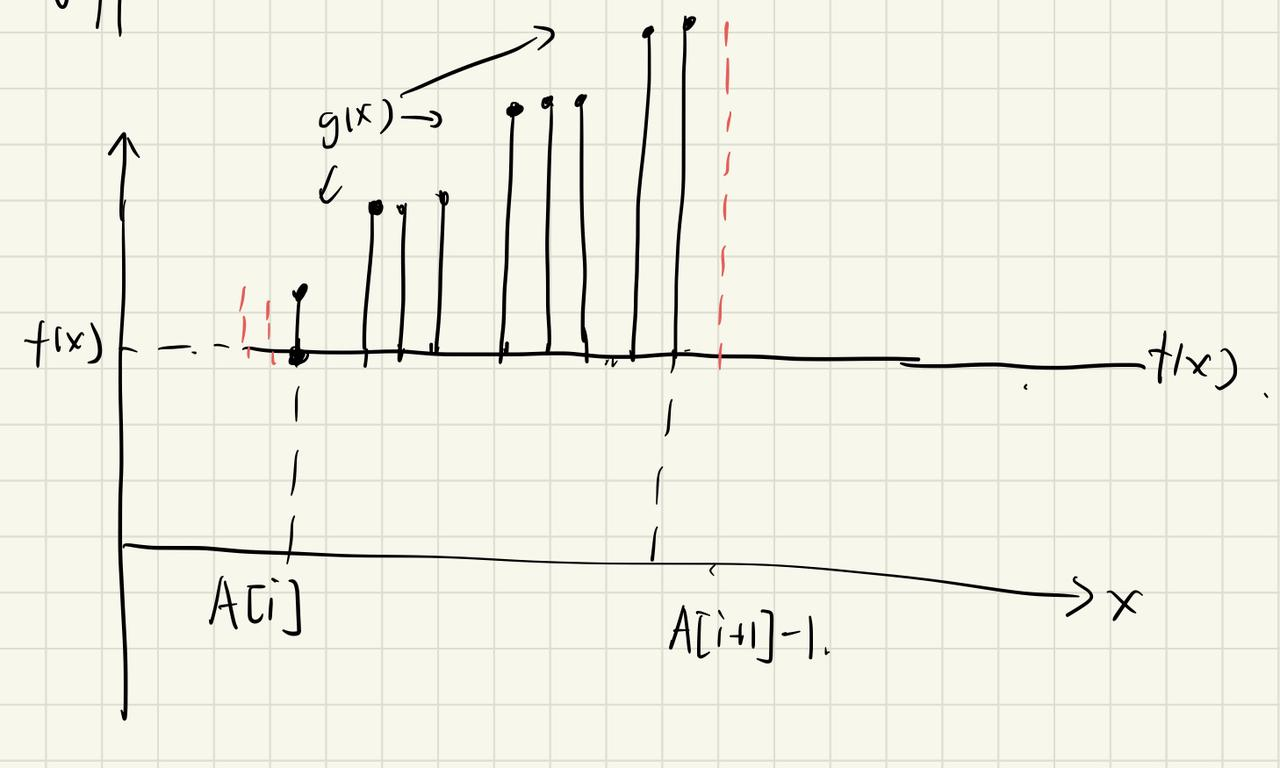 g(x)
f(x)
f(x)
A[i]
x
A[i+1]-1.